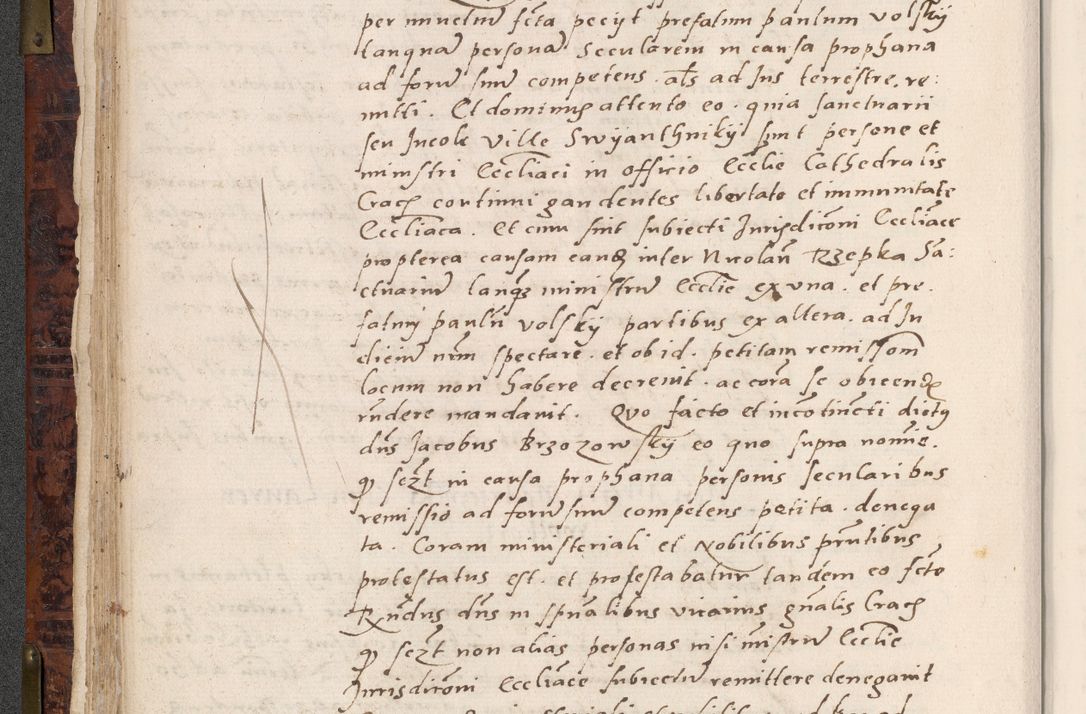 per mvctuum fcta peciyt prefatum paulum volskij
tanquam personam secularem in causa prophana
ad forum suum competens . als ad Jus terrestre . re:
mitti . Et dominus attento eo . quia sanctuarii
seu Jncole Ville Swyanthnikij sunt persone et
ministri Eccliaci in officio Ecclie Cathedralis
Crach continui gaudentes libertate et immunitate
Eccliaca . Et cum sint subiecti Jurisditioni Eccliace
propterea causam eandem inter Nicolaum Rzepka Sa:
ctuarium tanquam ministrum Ecclie ex vna . et pre.
fatum paulum volskij partibus ex altera . ad Ju
diciu nrm spectare . et ob id . petitam remissiom
locum non habere decrevit . ac cora se obicendum
rndere mandavit . Quo facto et incotineti dictus
dns Jacobus Brzozowskij eo quo supra nomine .
quod sezt in causa prophana personis secularibus
remissio ad forum suum competens petita . denega
ta . Coram ministeriali et Nobilibus prntibus
protestatus est . et protestabatur tandem eo fcto
Rndus dns in spualibus vicarius gnalis Crach
quod sezt non alias personas nisi mistrum Ecclie
Jurisditioni Eccliace subiectum remittere denegavit